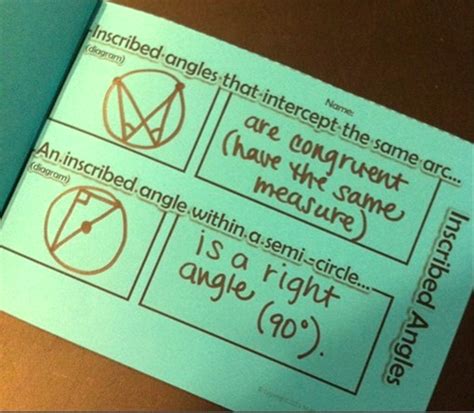 Name:
Inscribed angles that intercept the same arc...
(diagram)
are congruent
(have the same
measure)
An inscribed angle within a semi-circle...
(diagram)
is a right
angle (90°).
Inscribed Angles